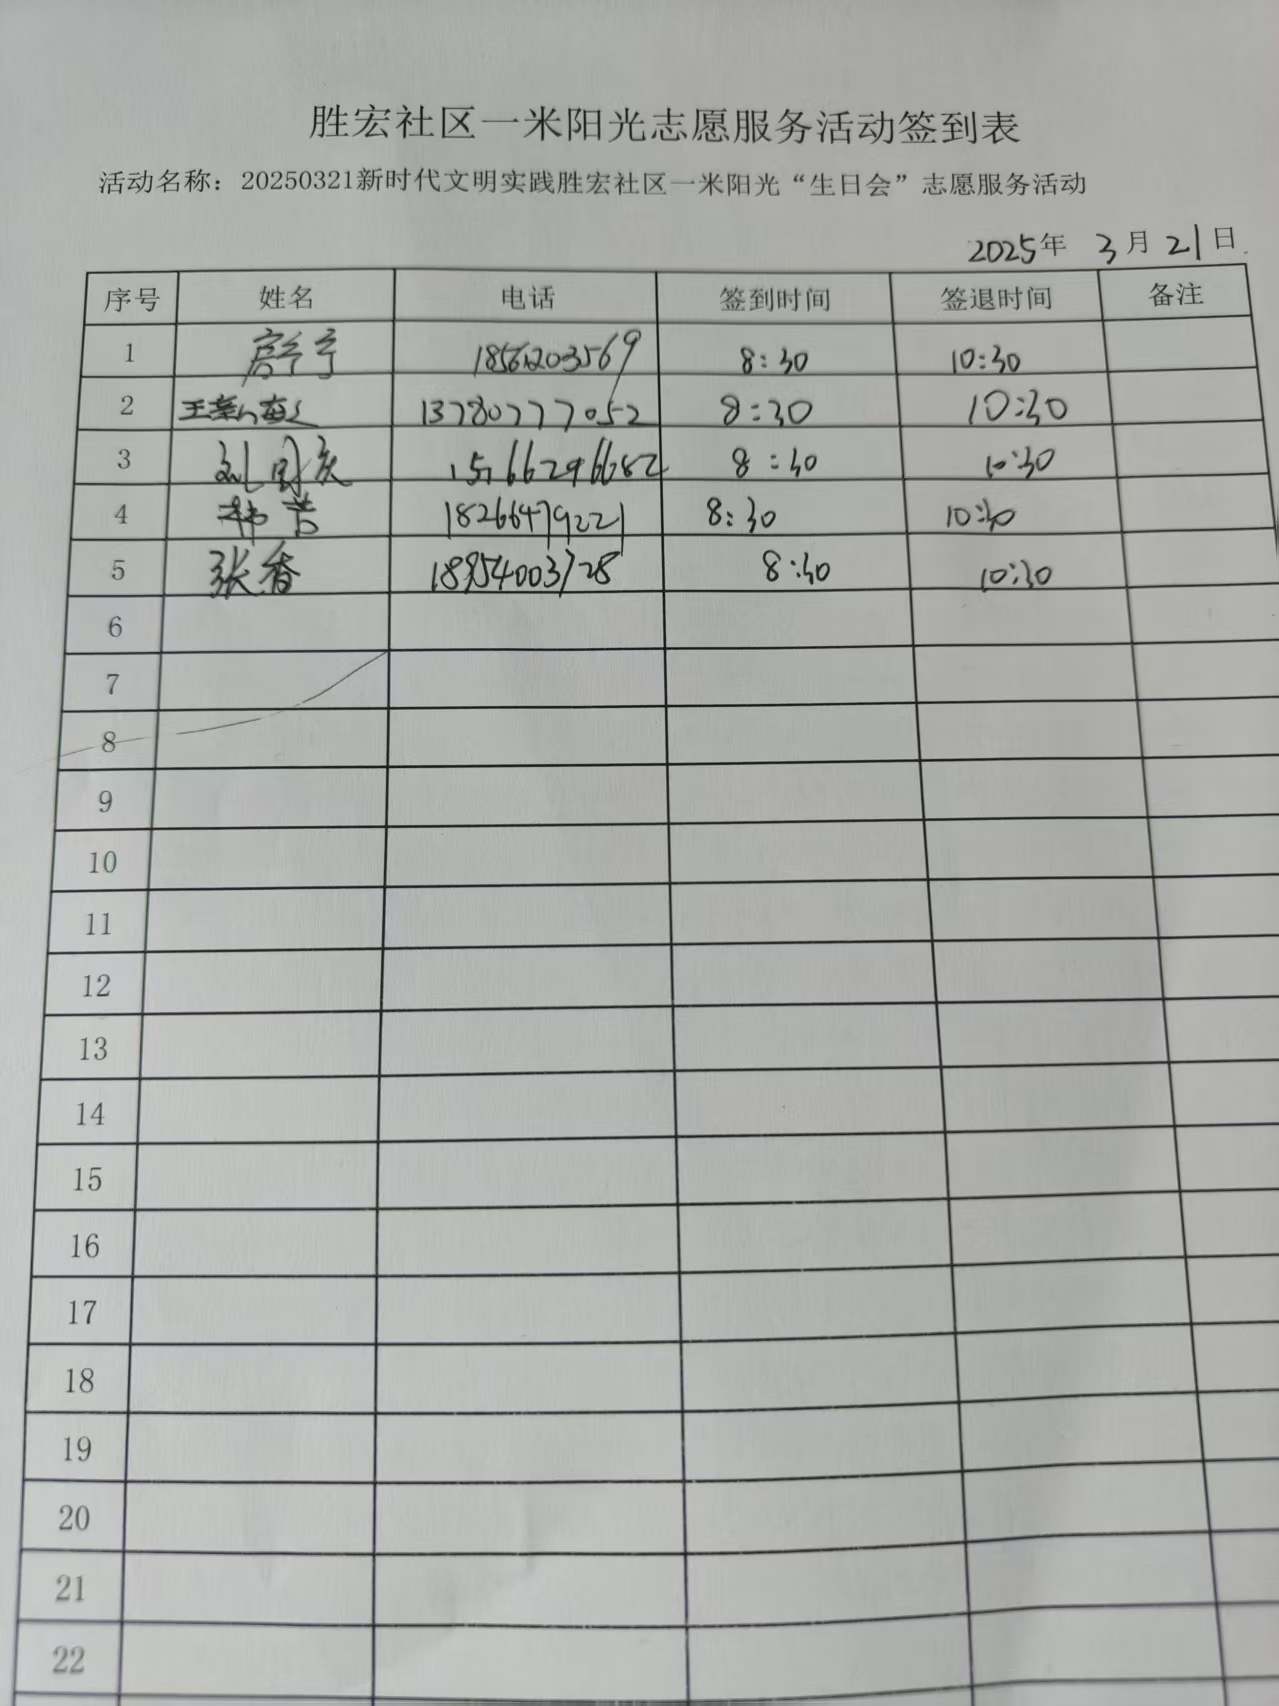 胜宏社区一米阳光志愿服务活动签到表
活动名称：20250321新时代文明实践胜宏社区一米阳光“生日会”志愿服务活动
2025年 3月21日
序号 姓名 电话 签到时间 签退时间 备注
1 18561203569 8:30 10:30
2 王 13780777052 8:30 10:30
3 刘 15266296682 8:30 10:30
4 18266479221 8:30 10:30
5 张香 18954003728 8:30 10:30
6
7
8
9
10
11
12
13
14
15
16
17
18
19
20
21
22